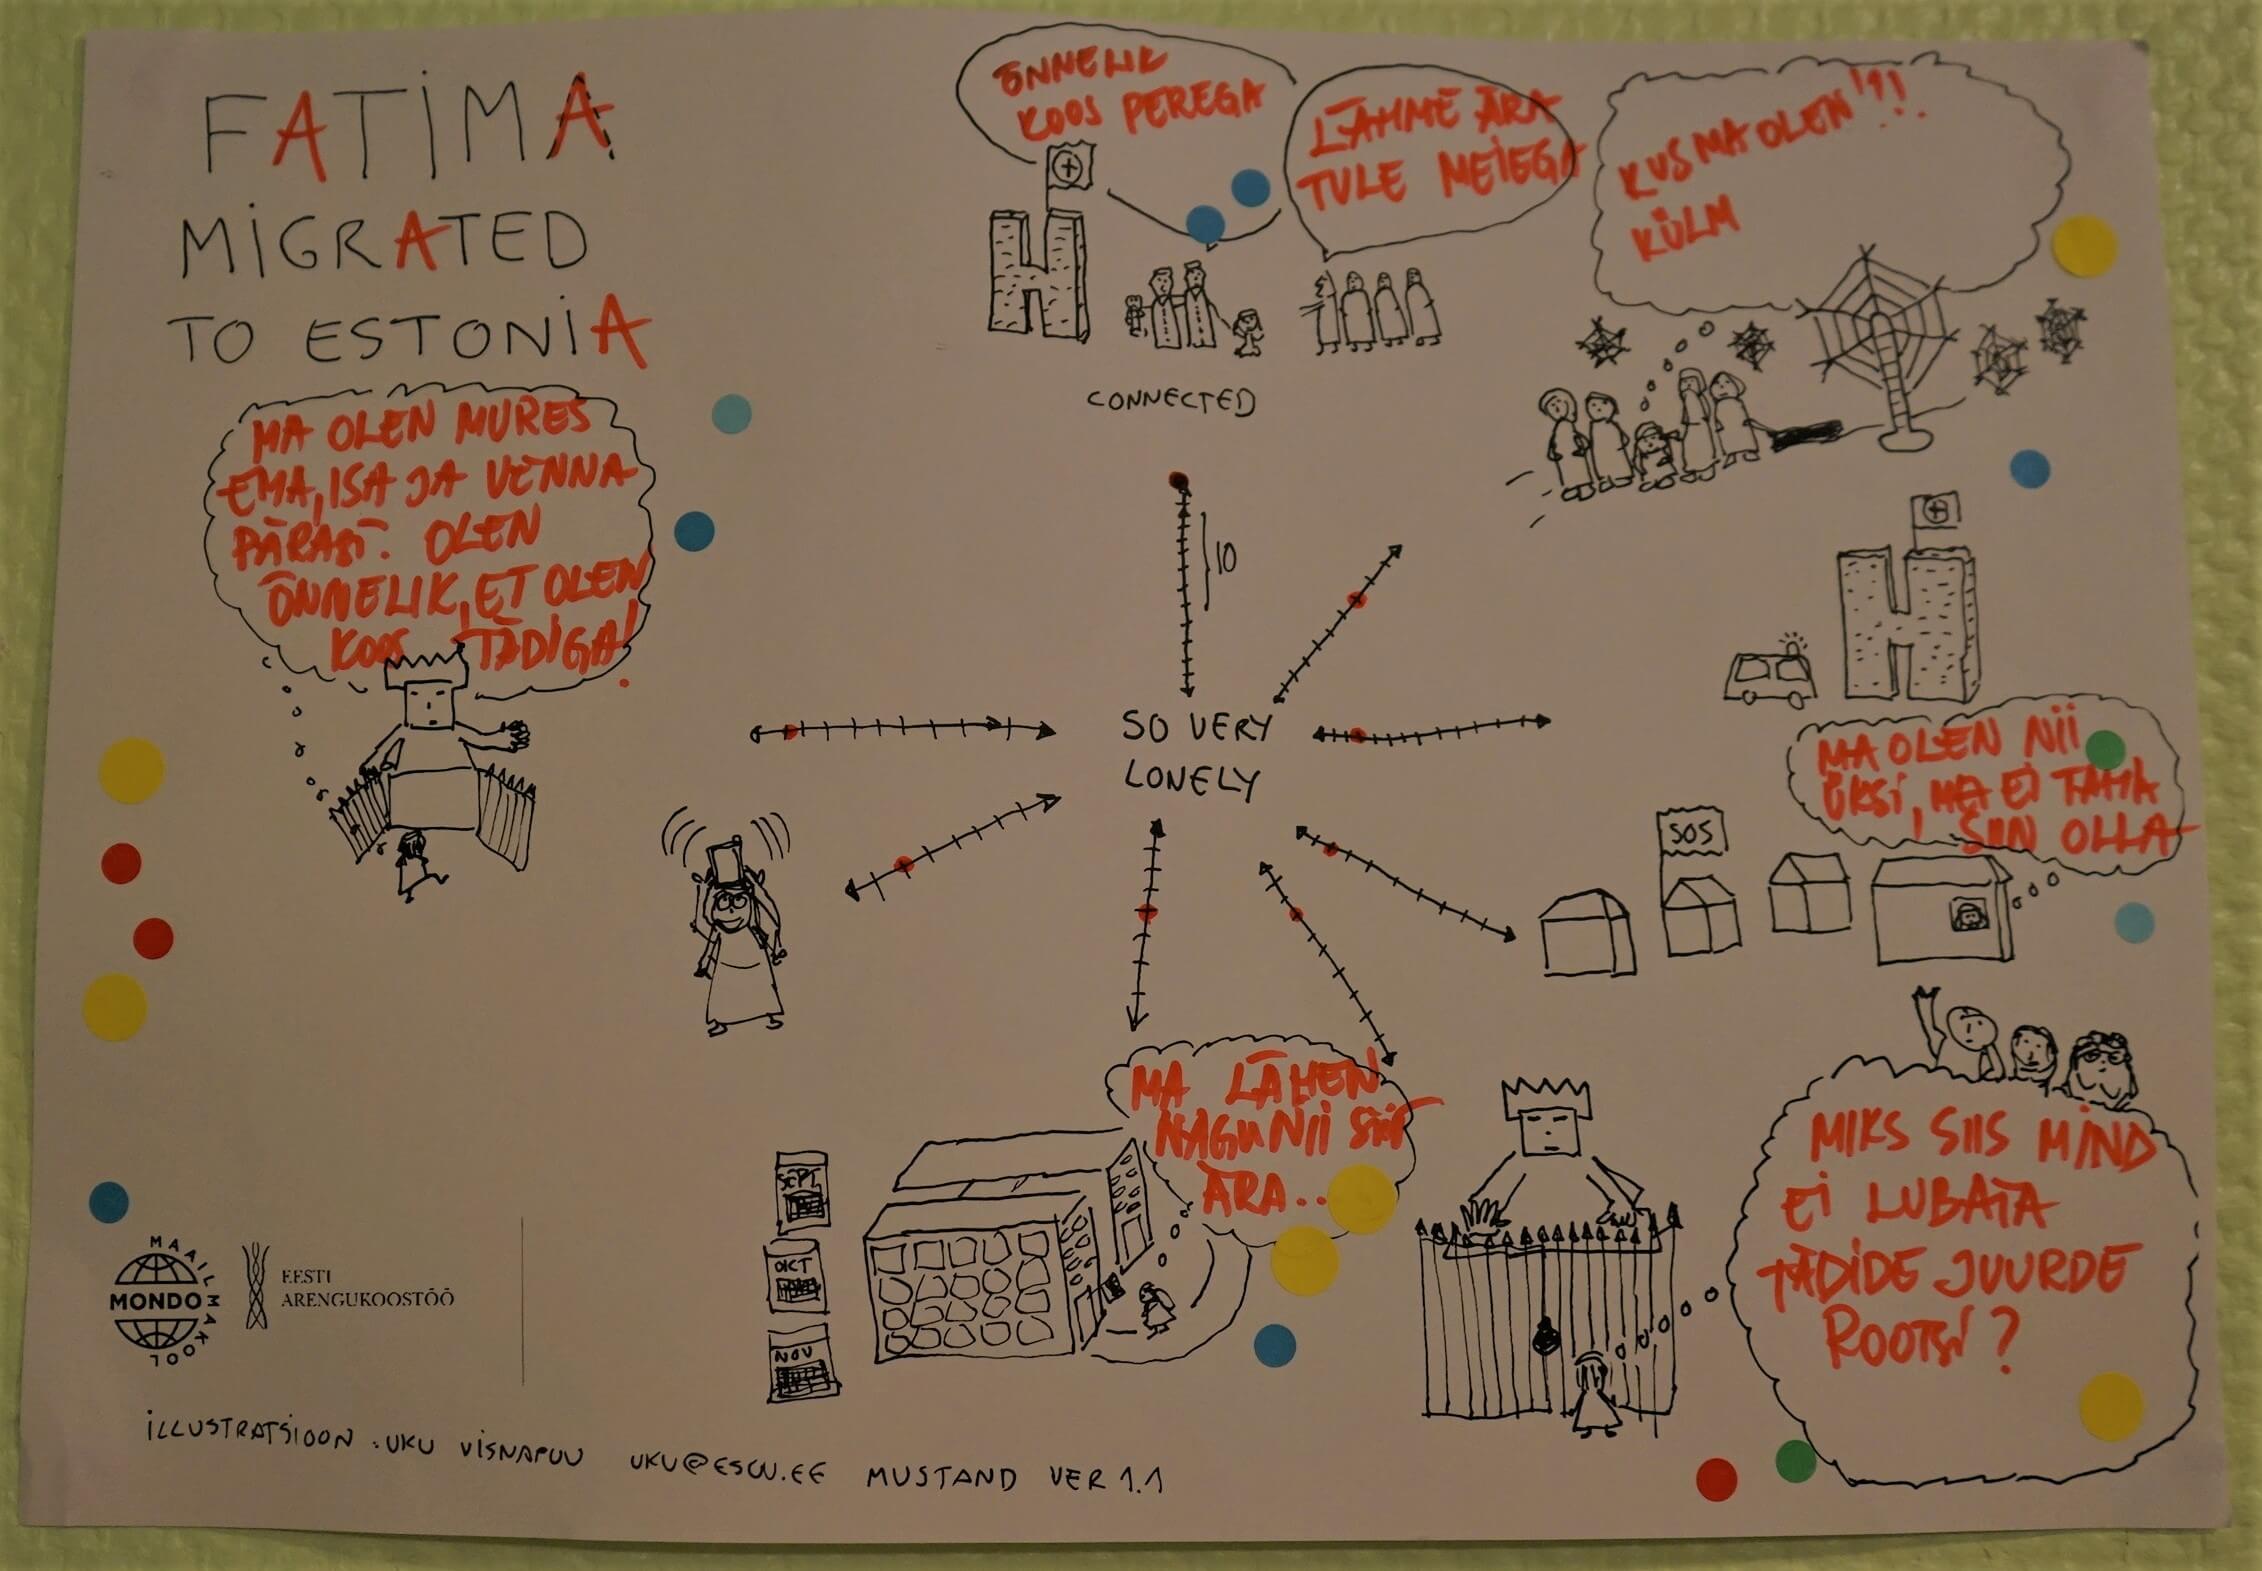 FATIMA
MIGRATED
TO ESTONIA
ÕNNELIK
KOOS PEREGA
LÄHME ÄRA
TULE MEIEGA
KUS MA OLEN!?!
KÜLM
CONNECTED
10
SO VERY
LONELY
MA OLEN MURES
EMA, ISA JA VENNA
PÄRAST. OLEN
ÕNNELIK, ET OLEN
KOOS TÄDIGA!
H
H
MA OLEN NII
ÜKSI, MA EI TAHA
SIIN OLLA
SOS
MA LÄHEN
NAGUNII SIIT
ÄRA..
SEPT
OKT
NOV
MIKS SIIS MIND
EI LUBATA
TÄDIDE JUURDE
ROOTSI?
MAAILMAKOOL
MONDO
EESTI
ARENGUKOOSTÖÖ
ILLUSTRATSIOON: UKU VISNAPUU UKU@ESCU.EE MUSTAND VER 1.1